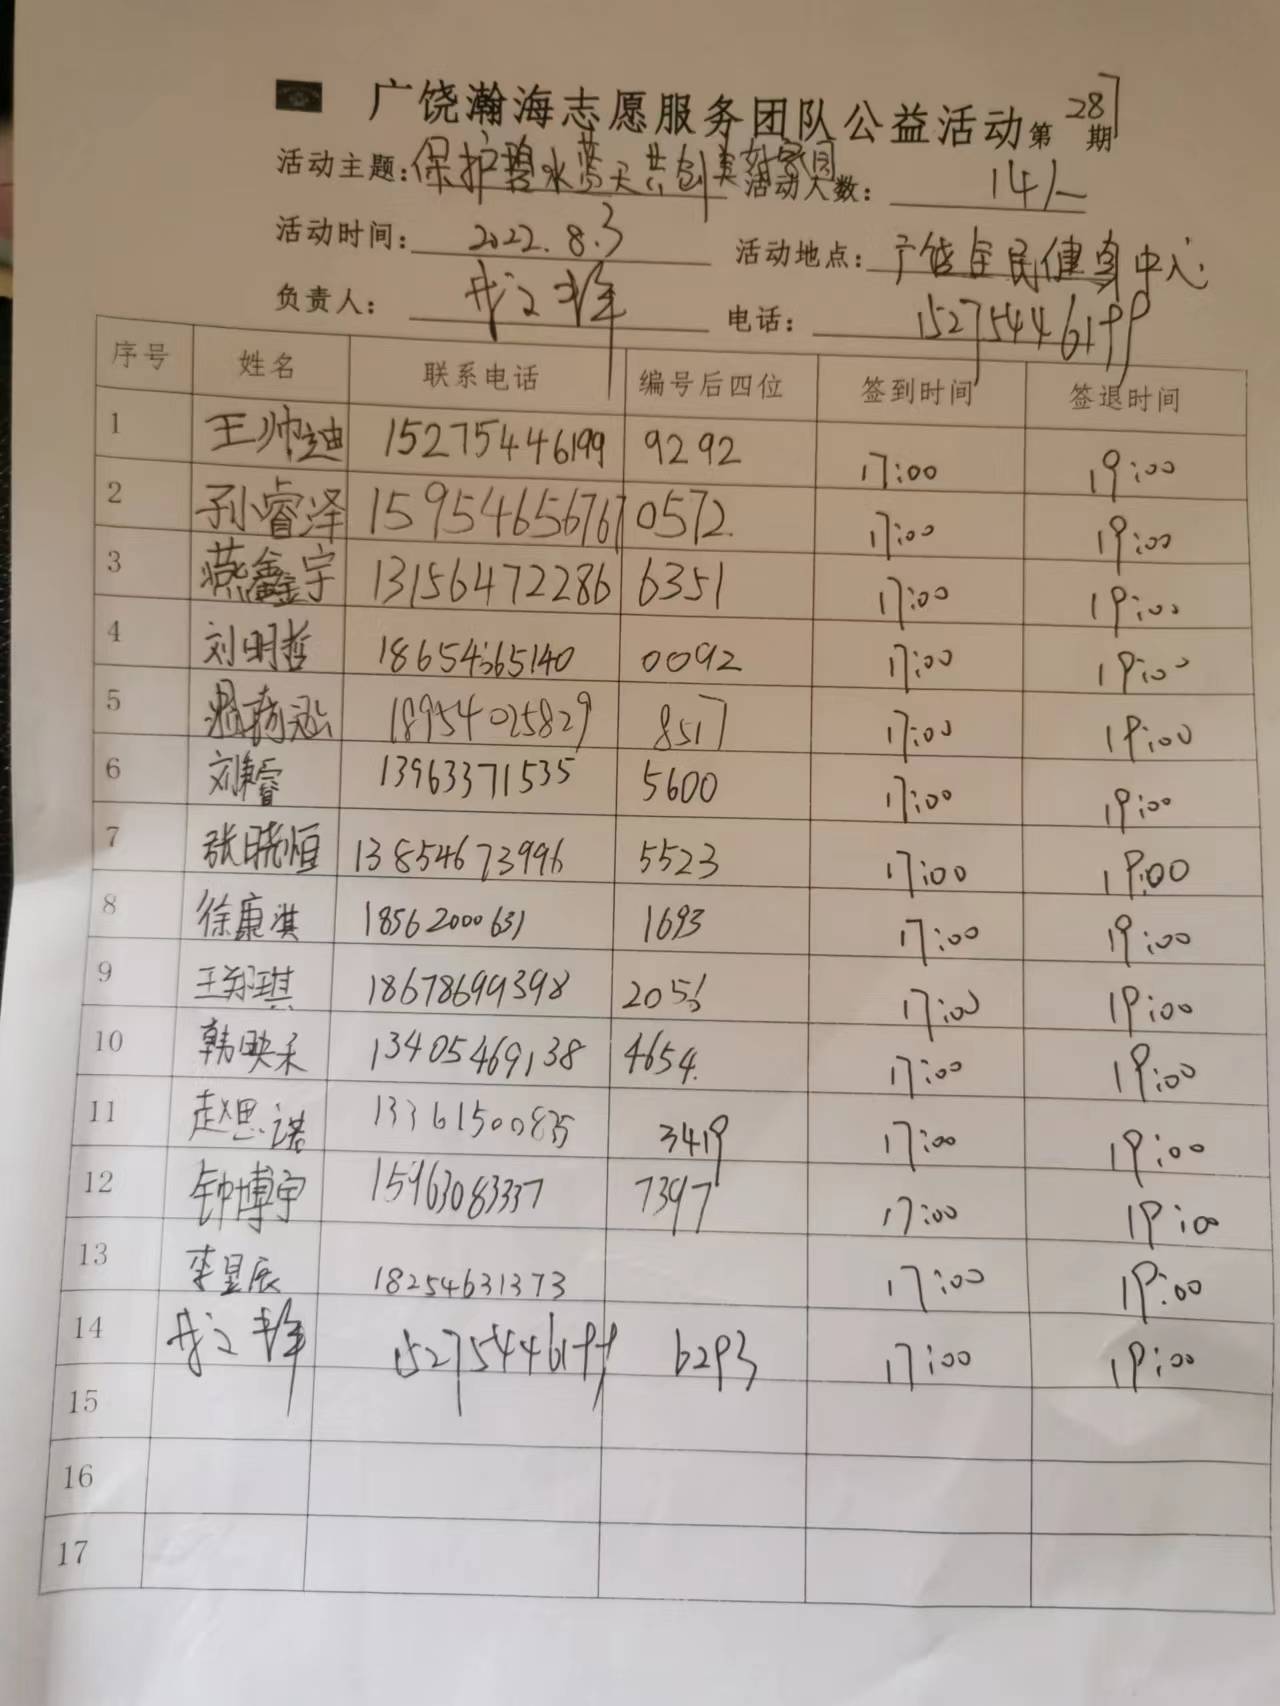 广饶瀚海志愿服务团队公益活动第28期
活动主题:保护碧水蓝天共创美好家园 活动人数: 14人
活动时间: 2022.8.3 活动地点: 广饶全民健身中心
负责人: 电话: 15275446199
序号 姓名 联系电话 编号后四位 签到时间 签退时间
1 王帅迪 15275446199 9292 17:00 19:00
2 孙睿泽 15954656767 0572 17:00 19:00
3 燕鑫宇 13156472286 6351 17:00 19:00
4 刘明哲 18654665140 0092 17:00 19:00
5 18954025829 8517 17:00 19:00
6 13963371535 5600 17:00 19:00
7 张晓恒 13854673996 5523 17:00 19:00
8 徐康淇 18562000631 1693 17:00 19:00
9 王郑琪 18678699398 2056 17:00 19:00
10 韩映禾 13405469138 4654 17:00 19:00
11 赵思诺 13361500835 3419 17:00 19:00
12 钟博宇 15963083337 7397 17:00 19:00
13 李昱辰 18254631373 17:00 19:00
14 15275446199 6293 17:00 19:00
15
16
17